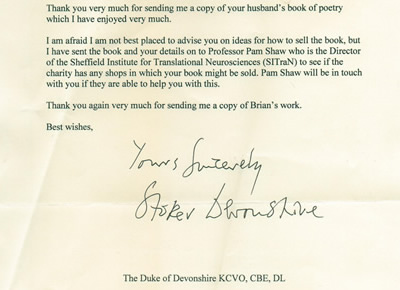 Thank you very much for sending me a copy of your husband's book of poetry
which I have enjoyed very much.
I am afraid I am not best placed to advise you on ideas for how to sell the book, but
I have sent the book and your details on to Professor Pam Shaw who is the Director
of the Sheffield Institute for Translational Neurosciences (SITraN) to see if the
charity has any shops in which your book might be sold. Pam Shaw will be in touch
with you if they are able to help you with this.
Thank you again very much for sending me a copy of Brian's work.
Best wishes,
Yours Sincerely
Stoker Devonshire
The Duke of Devonshire KCVO, CBE, DL